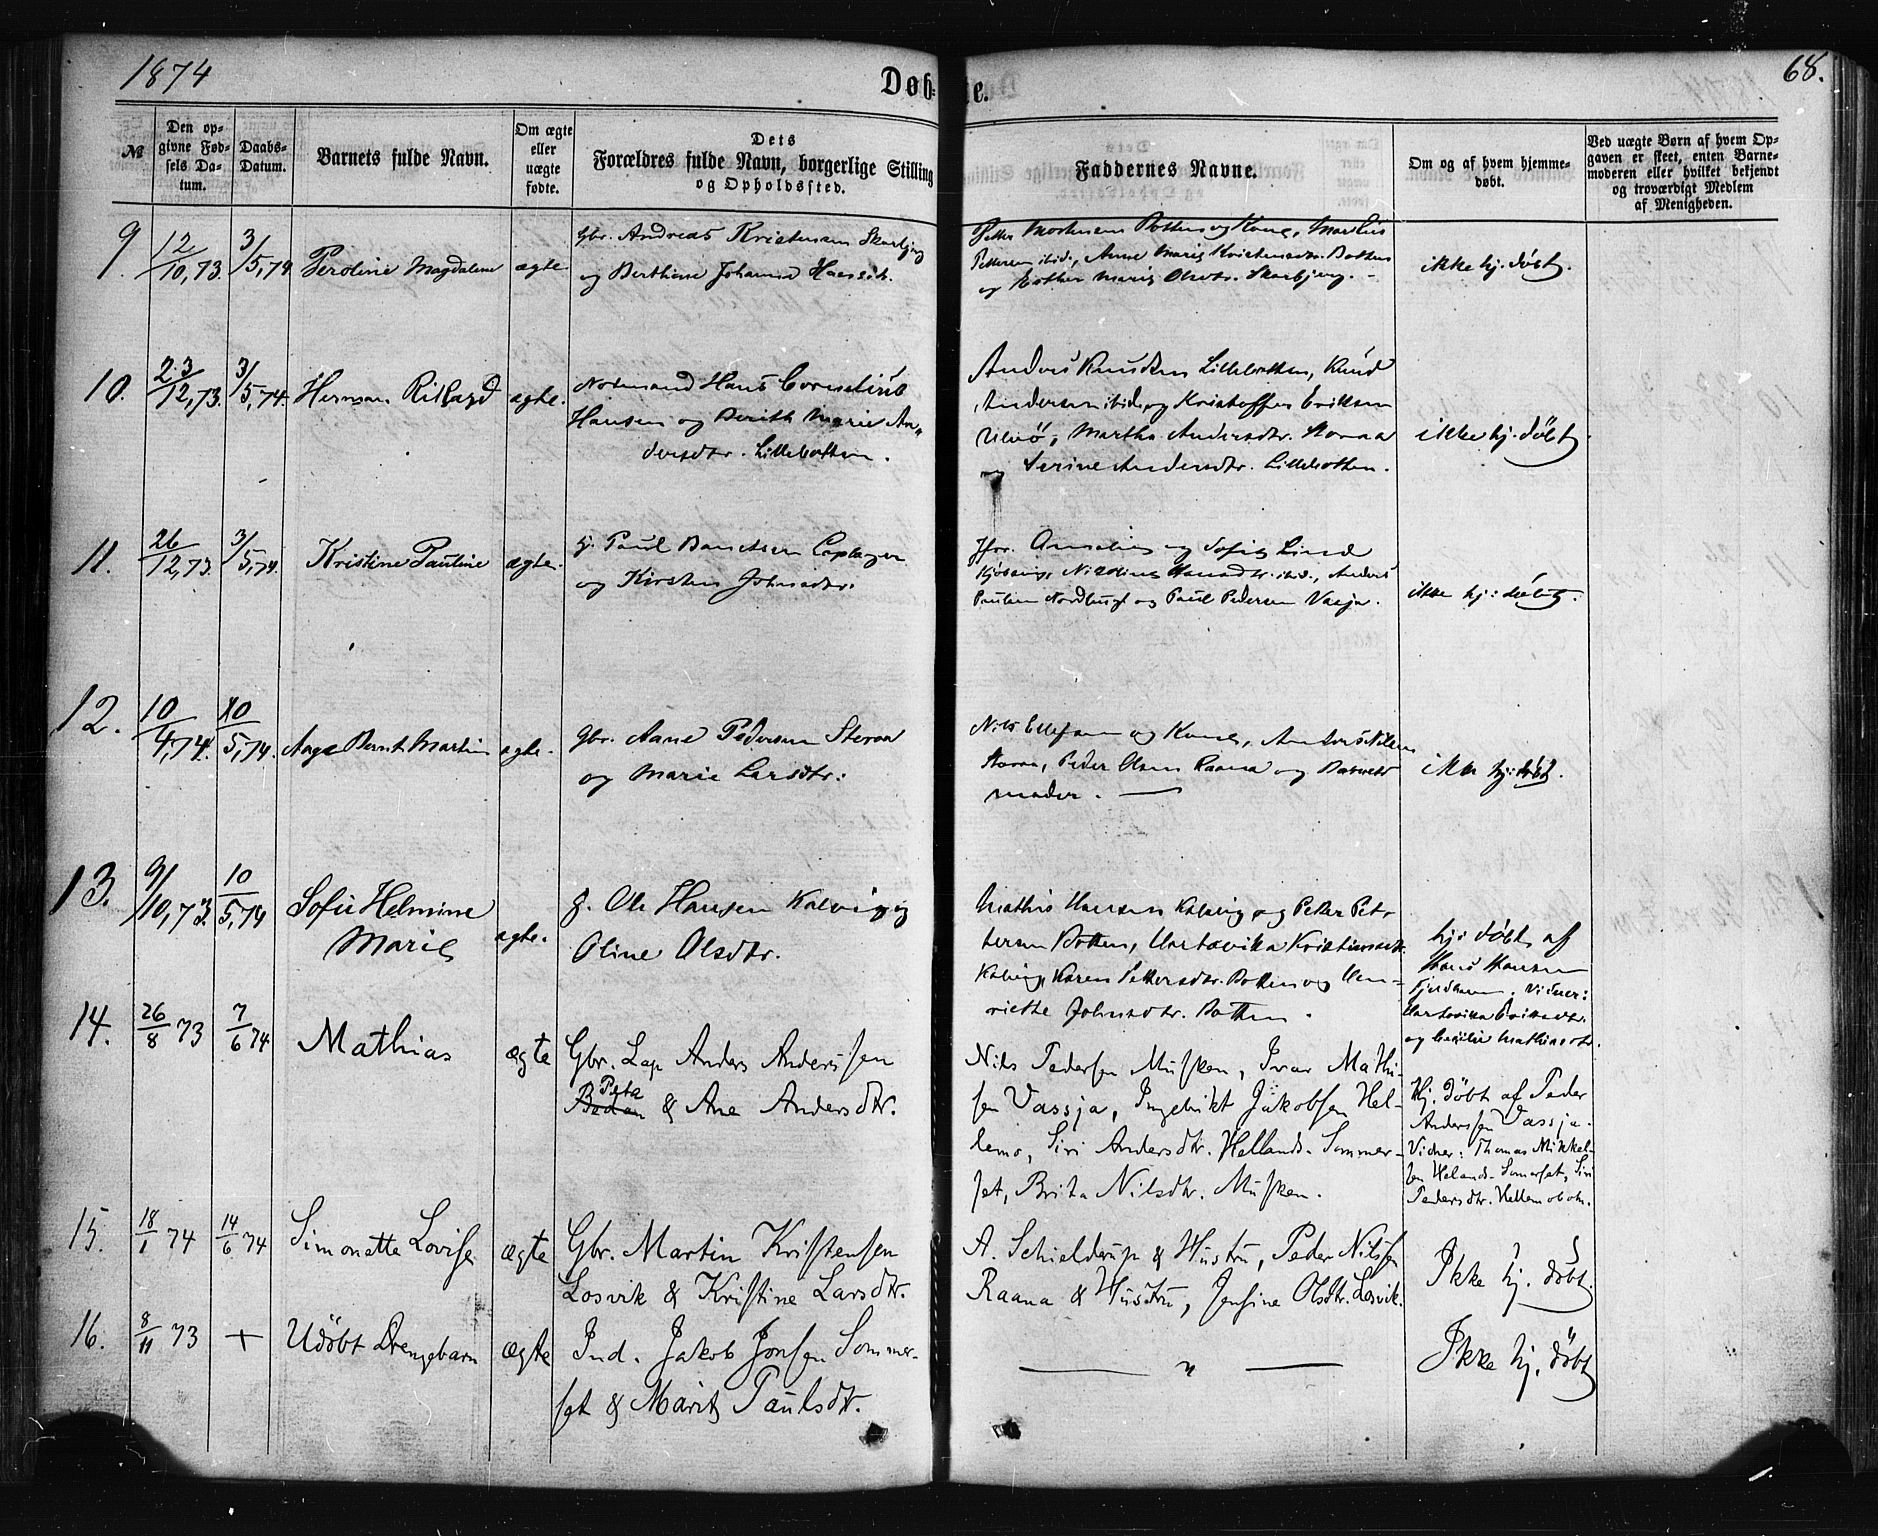 1874
Døb-
te.
68.
№
Den op-
givne Fød-
sels Da-
tum.
Daabs-
Datum.
Barnets fulde Navn.
Om ægte
eller
uægte
fødte.
Dets
Forældres fulde Navn, borgerlige Stilling
og Opholdssted.
Faddernes Navne.
Om og af hvem hjemme-
døbt.
Ved uægte Børn af hvem Op-
gaven er skeet, enten Barne-
moderen eller hvilket bekjendt
og troværdigt Medlem
af Menigheden.
9. 12/10,73. 3/5,74. Peroline Magdalene ægte.
Gbr. Andreas Kristensen
og Berthine Johanna
Petter Mortensen Botten og Kone,
Pettersen ibid., Anne Marie Kristensdtr. Botten
og Marie Olsdtr.
ikke hj. døbt.
10. 23/12,73. 3/5,74. Herman Rikhard ægte.
Nordmand Hans Cornelius
Hansen og Berith Marie An-
dersdtr. Lillebotten.
Anders Knudsen Lillebotten, Knud
Andersen ibid. og Kristoffer Eriksen
Ulvø, Martha Andersdtr. Korraa
og Serine Andersdtr. Lillebotten.
ikke hj. døbt.
11. 26/12,73. 3/5,74. Kristine Pauline ægte.
Paul
og Kirsten Johnsdtr.
og Sofie Lind
ibid., Anders
Paulsen Nordbugt og Paul Pedersen
ikke hj: døbt.
12. 10/4,74. 10/5,74. Aage Bernt Martin ægte.
Gbr. Aane Pedersen
og Marie Larsdtr:
Nils Ellefsen og Kone, Anders Nilsen
Peder Olsen Raana og Barnets
moder.
ikke hj: døbt.
13. 9/10,73. 10/5,74 Sofie Helmine
Marie
ægte.
g. Ole Hansen Kalvig og
Oline Olsdtr.
Mathis Hansen Kalvig og Petter Pet-
tersen Botten, Hartavika
Kalvig, Karen Pettersdtr. Botten og Hen-
riette Johnsdtr. Botten.
hj: døbt af
Hans Hansen
Vidner:
og Cecilie Mathisdtr.
14. 26/8 73 7/6 74 Mathias ægte
Gbr. Lap Anders Anderssen
& Ane Andersdtr.
Nils Pedersen Musken, Ivar Mathi-
sen Vassja, Ingebrikt Jakobsen Hel-
lemo, Siri Andersdtr. Hellands-Sommer-
set, Brita Nilsdtr. Musken.
Hj. døbt af Peder
Anderssen Vassja.
Vidner: Thomas Mikkel-
sen Helands-Somerset, Siri
Pedersdtr. Hellemobotn.
15. 18/1 74 14/6 74 Simonette Lovise ægte
Gbr. Martin Kristensen
Losvik & Kristine Larsdtr.
A. Schielderup & Hustru, Peder Nilssen
Raana & Hustru, Jensine Olsdtr. Losvik.
Ikke hj. døbt.
16. 8/11 73 + Udöbt Drengebarn ægte
Ind. Jakob Jonsen Sommer-
set & Marit Paulsdtr.
— " —
Ikke hj. døbt